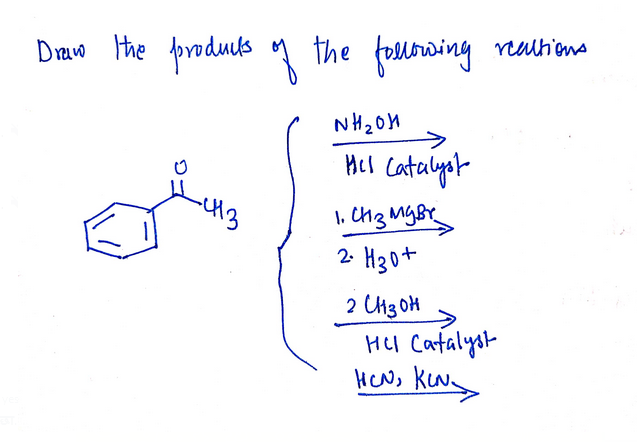 Draw the products of the following reactions
NH2OH
HCl Catalyst
O
CH3
1. CH3MgBr
2. H3O+
2 CH3OH
HCl Catalyst
HCN, KCN